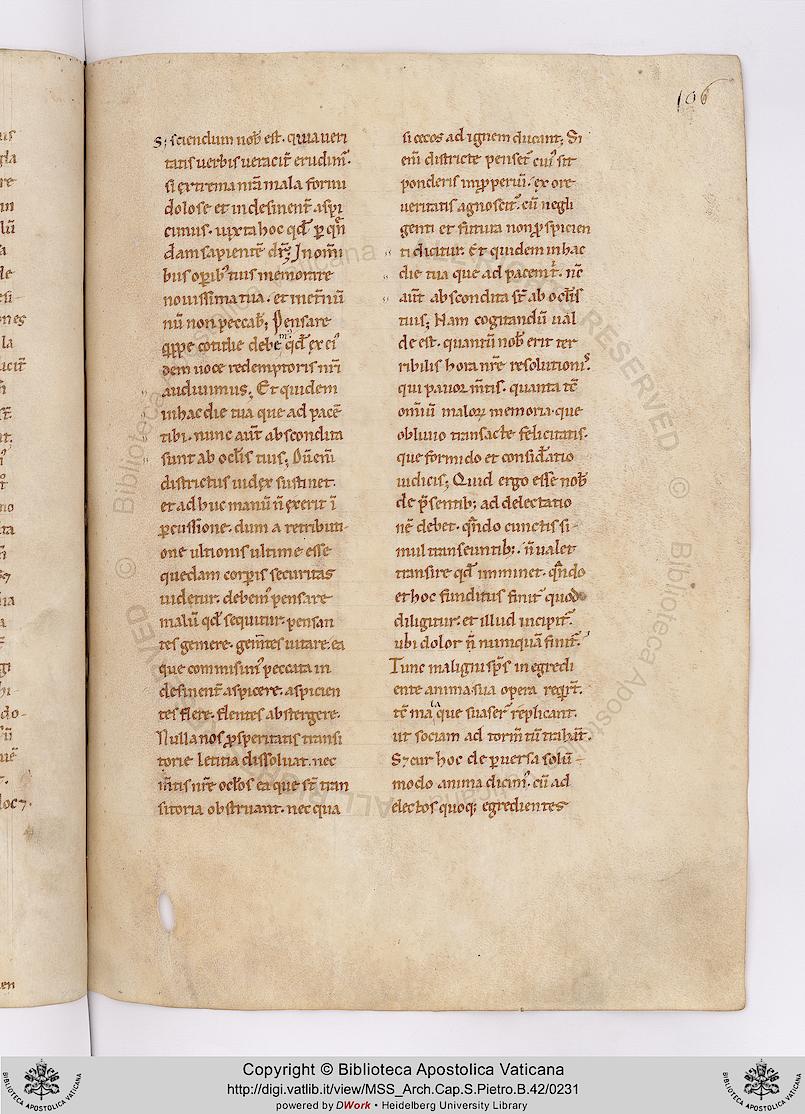 106
S; sciendum nob̄ est. quia ueri
tatis uerbis ueracit̄ erudim᷒.
si extrema nr̄a mala formi
dolose et indesinent̄ aspi
cimus. iuxta hoc qđ p quēn
dam sapientē dr̄; In om̄i
bus opib᷒ tuis memorare
nouissima tua. et in et̄nū
nū non peccab̄; Pensare
q̨ppe cotidie debem᷒ qđ ex ei᷒
dem uoce redemptoris nr̄i
audiuimus; Et quidem
in hac die tua que ad pacē
tibi. nunc aūt abscondita
sunt ab oclīs tuis; Dū em̄
districtus iudex sustinet.
et adhuc manū n̄ exerit ī
pcussione. dum a retributi-
one ultionis ultime esse
quedam corpis securitas
uidetur. debem᷒ pensare
malū qđ sequitur. pensan
tes gemere. gem̄tes uitare. ea
que commisim᷒ peccata in
desinent̄ aspicere. aspicien
tes flere. flentes abstergere.
Nulla nos psperitatis transi
torie letitia dissoluat. nec
m̄tis nr̄e oclōs ea que st̄ tran
sitoria obstruant. nec qua
si cecos ad ignem ducant; Si
em̄ districte penset᷒ cui᷒ sit
ponderis impperiū. ex ore
ueritatis agnoscit᷒. cū negli
genti et futura non pspicien
ti dicitur. Et quidem in hac
die tua que ad pacem t᷒. nc̄
aūt abscondita st̄ ab oclīs
tuis; Nam cogitandū ual
de est. quantū nob̄ erit ter
ribilis hora nr̄e resolutionis᷒.
qui pauor m̄tis. quanta tē
om̄iū malorꝝ memoria. que
obliuio transacte felicitatis.
que formido et considātio
iudicis; Quid ergo esse nob̄
de p̄sentib; ad delectatio
nē debet. qn̄do cunctis si-
mul transeuntib;. n̄ ualet
transire qđ imminet. qn̄do
et hoc funditus finit᷒ quod
diligitur. et illud incipit᷒.
ubi dolor n̄ numquā finit᷒.
Tunc maligni sps̄ in egredi
ente anima sua opera reqrt̄.
tē mala que suaser᷒ replicant.
ut sociam ad torm̄tū trahāt.
S; cur hoc de puersa solū-
modo anima dicim᷒. cū ad
electos quoq; egredientes
Copyright © Biblioteca Apostolica Vaticana
http://digi.vatlib.it/view/MSS_Arch.Cap.S.Pietro.B.42/0231
powered by DWork • Heidelberg University Library